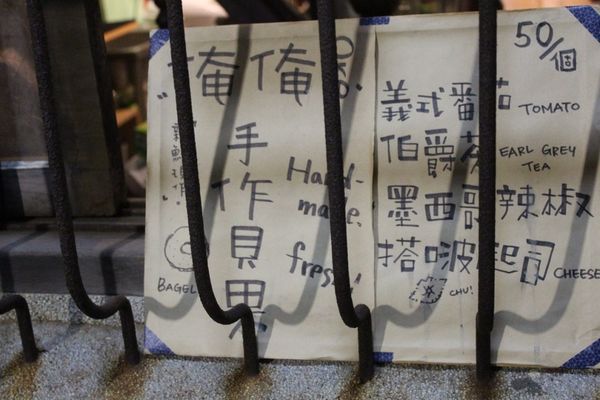 俺俺
手作貝果
Hand-
made.
fresh!
BAGEL
50/個
義式番茄 TOMATO
伯爵茶 EARL GREY
TEA
墨西哥辣椒
搭啵起司 CHEESE
CHU!